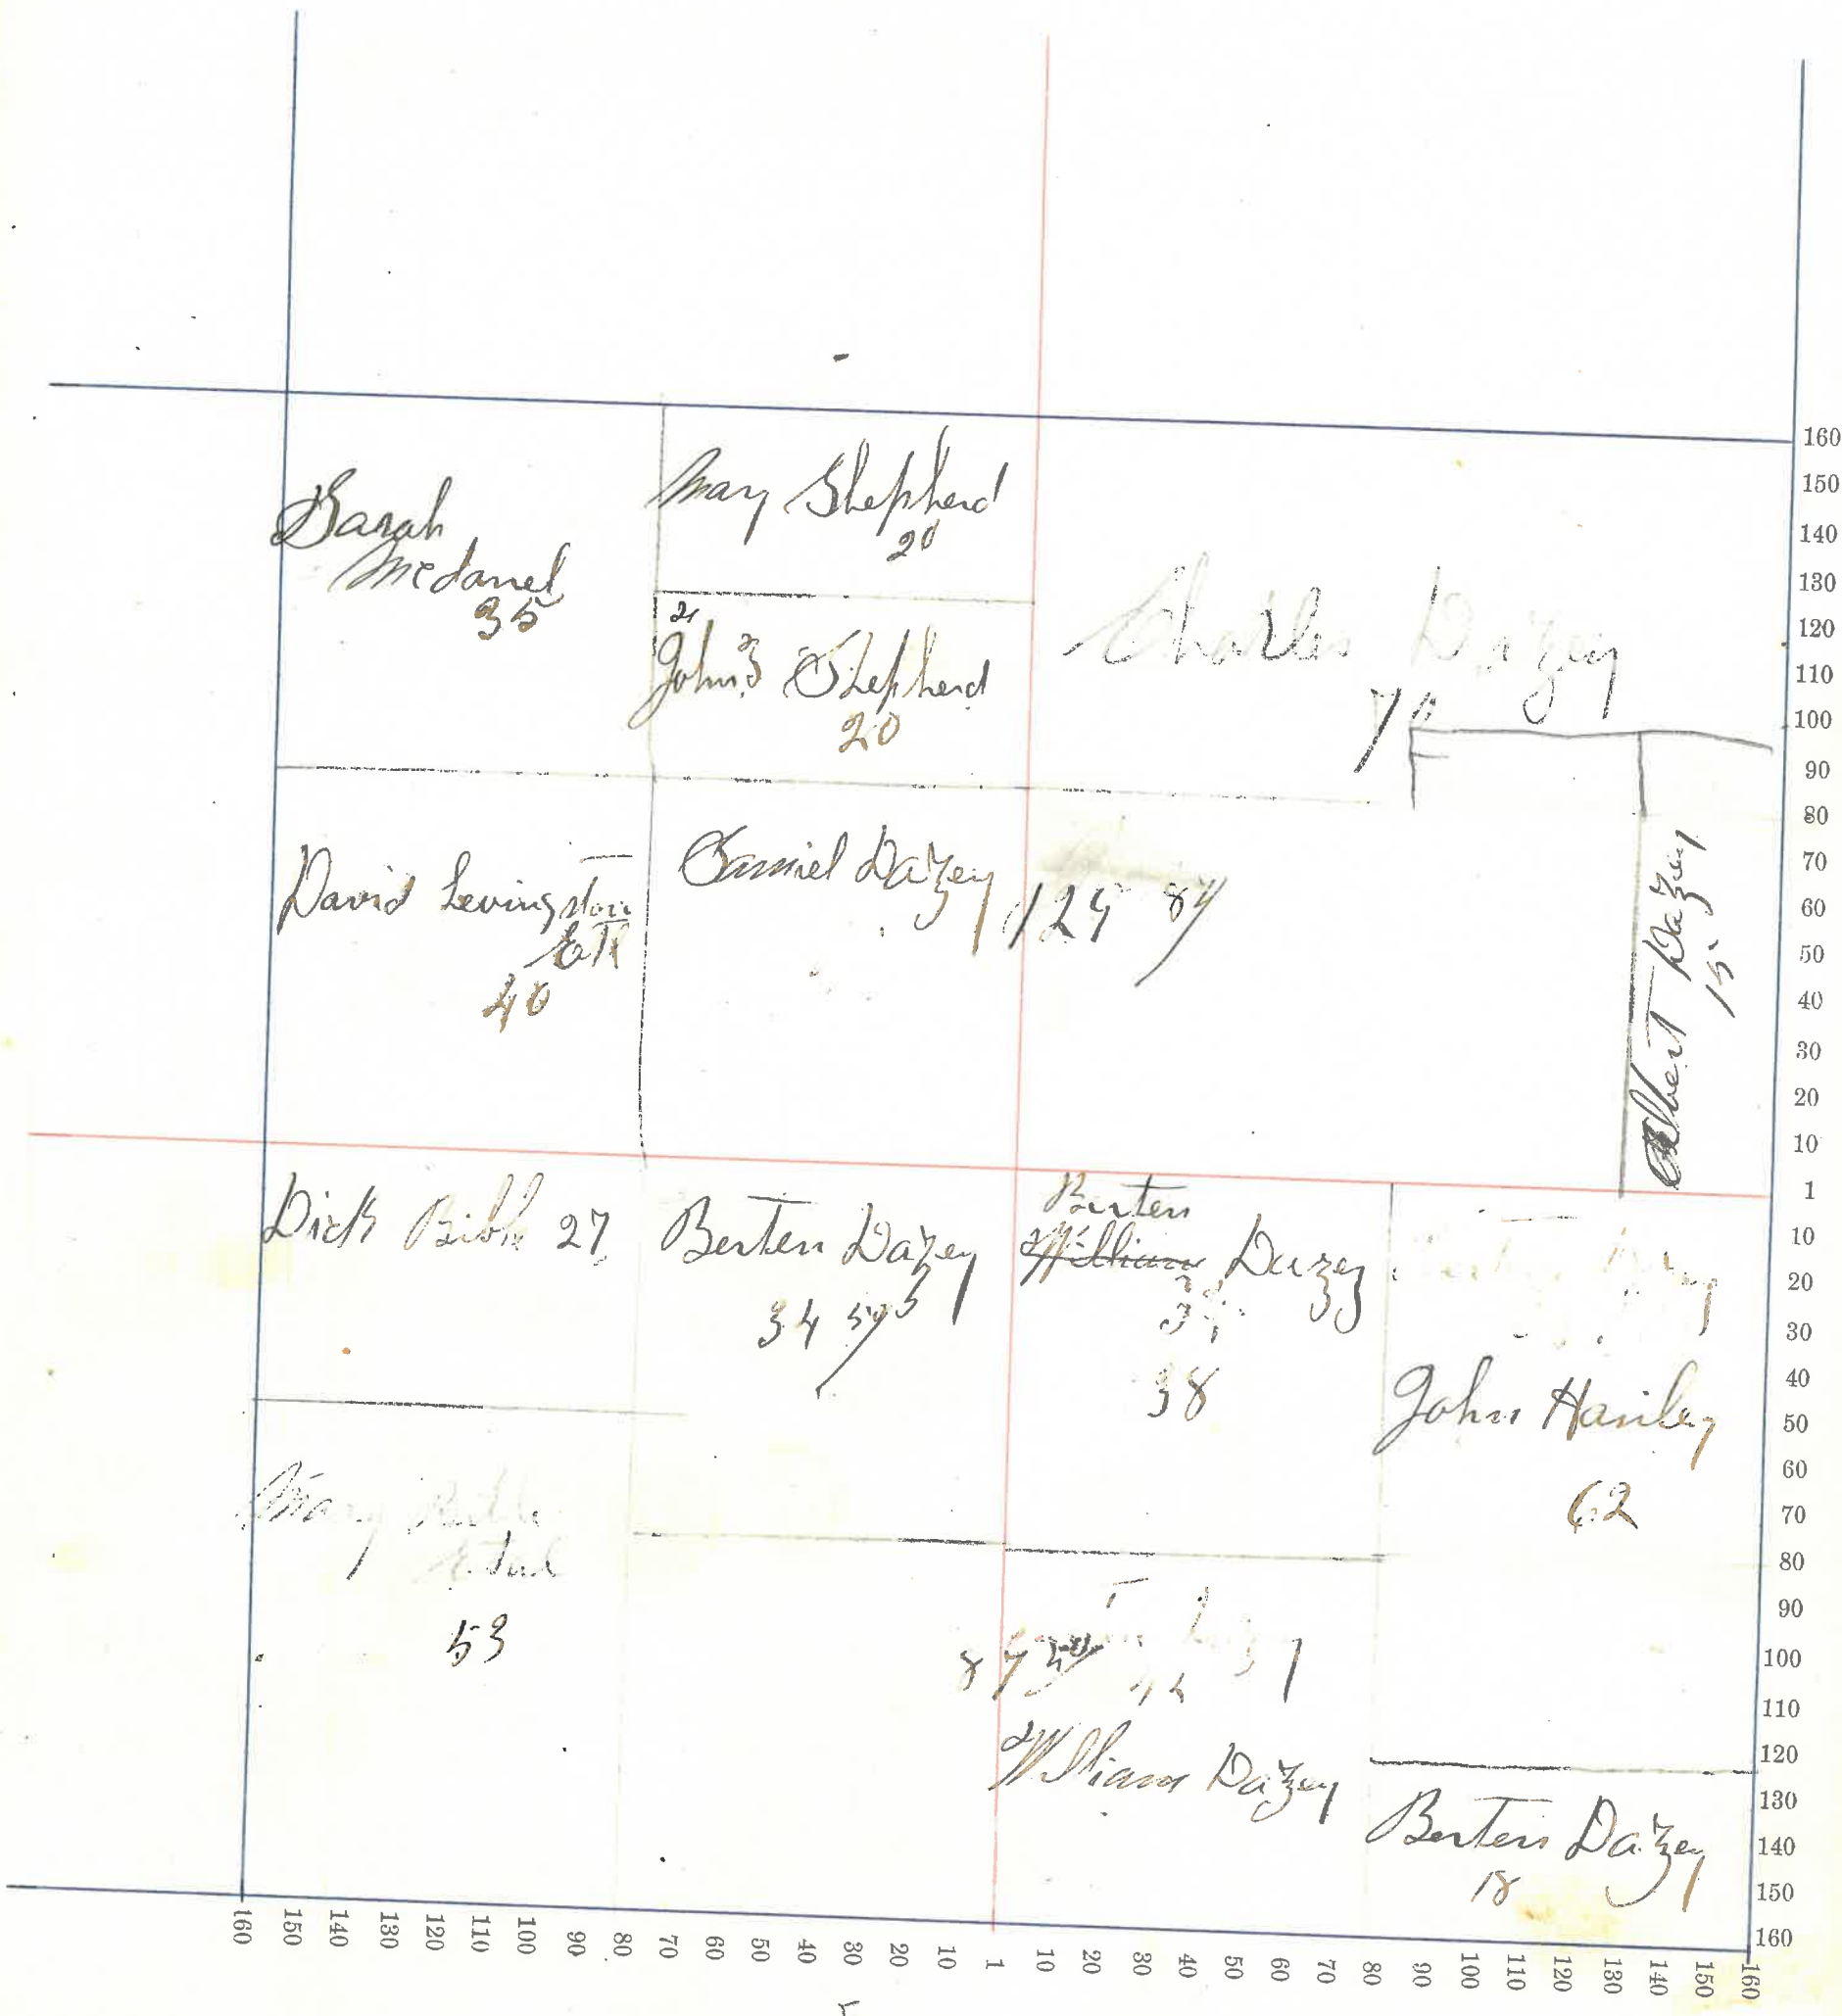 Sarah
Mcdanel
35
Mary Shepherd
20
John Shepherd
20
Charles Dazey
70
David Levingston
40
Samiel Dazey
129 84
Albert Dazey
15
Dick Bible 27
Berten Dazey
34
Berten
William Dazey
38
John Hanley
62
Mary Bible
Etal
53
87
William Dazey
Berten Dazey
18
160
150
140
130
120
110
100
90
80
70
60
50
40
30
20
10
1
10
20
30
40
50
60
70
80
90
100
110
120
130
140
150
160
160 150 140 130 120 110 100 90 80 70 60 50 40 30 20 10 1 10 20 30 40 50 60 70 80 90 100 110 120 130 140 150 160